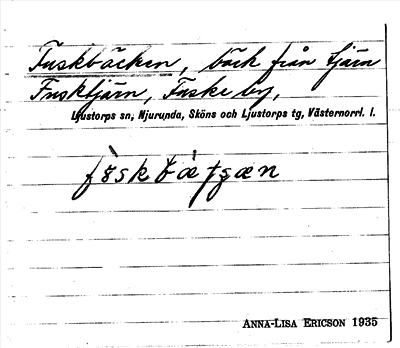 Fuskbäcken, bäck från tjärn
Fusktjärn, Fuske by,
Ljustorps sn, Njurunda, Sköns och Ljustorps tg, Västernorrl. l.
ANNA-LISA ERICSON 1935